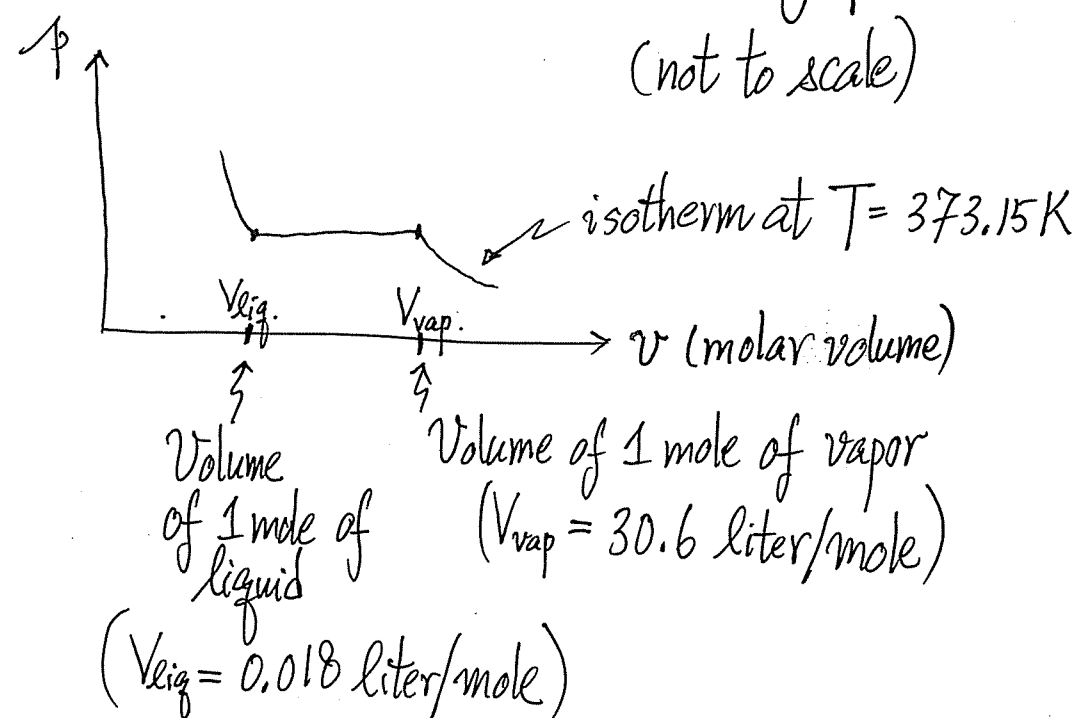 p
(not to scale)
isotherm at T = 373.15K
Vliq.
Vvap.
v (molar volume)
Volume
of 1 mole of
liquid
(Vliq = 0.018 liter/mole)
Volume of 1 mole of vapor
(Vvap = 30.6 liter/mole)